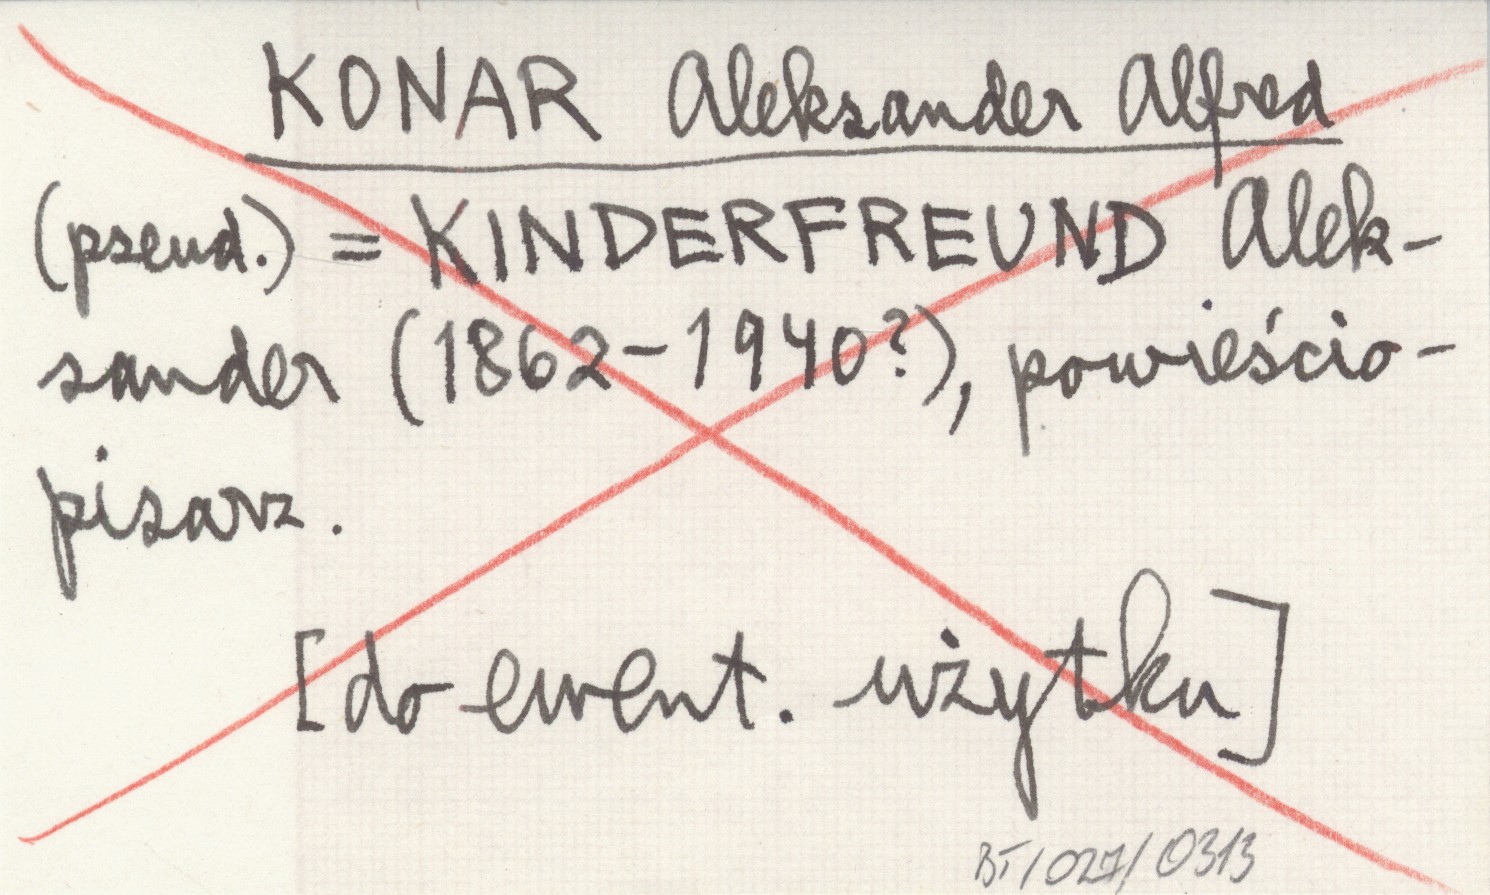 KONAR Aleksander Alfred
(pseud.) = KINDERFREUND Alek-
sander (1862-1940?), powieścio-
pisarz.
[do ewent. użytku]
BT/027/0313